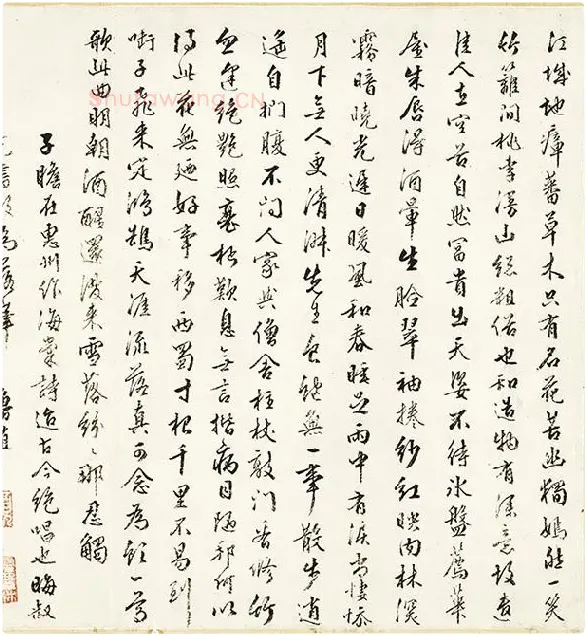 江城地瘴蕃草木只有名花苦幽獨嫣然一笑
竹籬間桃李漫山總粗俗也知造物有深意故遣
佳人在空谷自然富貴出天姿不待氷盤薦華
屋朱唇得酒暈生臉翠袖捲紗紅映肉林深
霧暗曉光遲日暖風和春睡足雨中有淚亦悽愴
月下無人更清淑先生食飽無一事散步逍
遙自捫腹不問人家與僧舍拄杖敲門看修竹
忽逢絕艷照衰朽歎息無言揩病目陋邦何以
得此花無乃好事移西蜀寸根千里不易到
銜子飛來定鴻鵠天涯流落真可念為飲一尊
歌此曲明朝酒醒還獨來雪落紛〻那忍觸
子瞻在惠州作海棠詩迨古今絕唱也晦叔